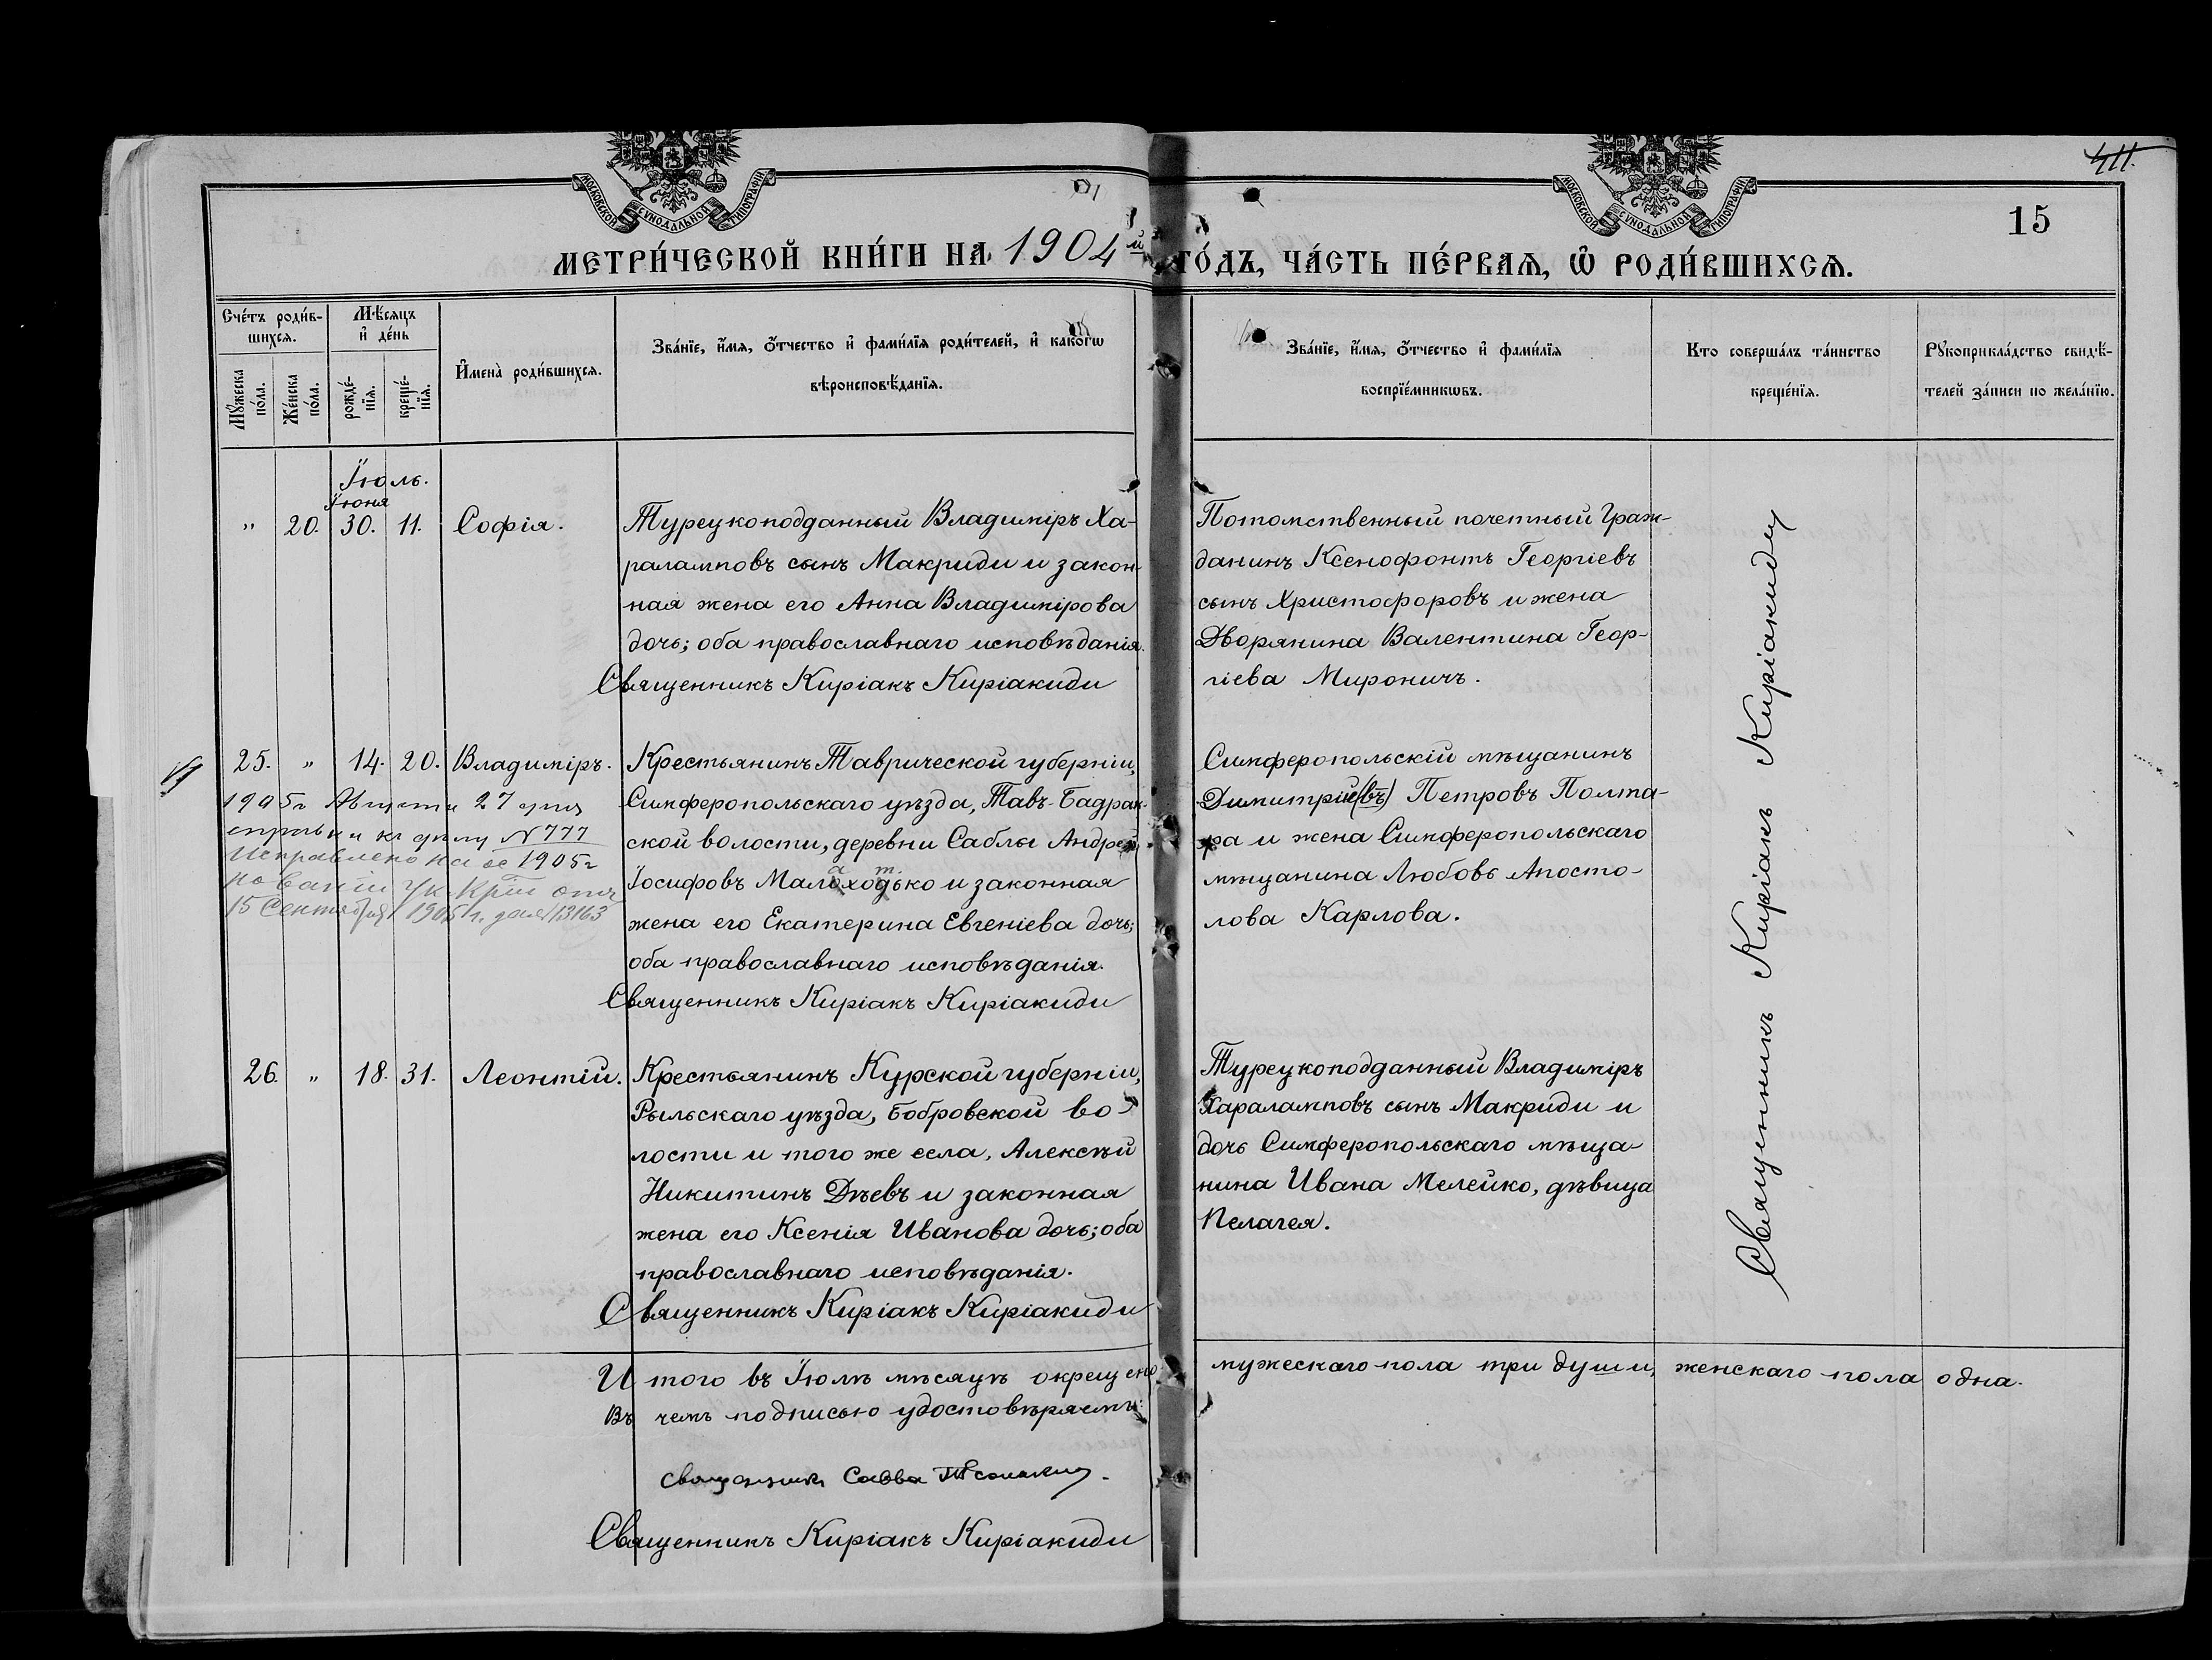 МОСКОВСКОЙ СѴНОДАЛЬНОЙ ТИПОГРАФІИ
МОСКОВСКОЙ СѴНОДАЛЬНОЙ ТИПОГРАФІИ
411.
15
МЕТРИ́ЧЕСКОЙ КНИ́ГИ НА 1904й ГО́ДЪ, ЧА́СТЬ ПЕ́РВАѦ, Ѡ҆ РОДИ́ВШИХСѦ.
Сче́тъ роди́в-
шихсѧ.
Мѣ́сѧцъ
и҆ де́нь
Мꙋ́жеска
по́ла.
Же́нска
по́ла.
рожде́-
нїѧ.
креще́-
нїѧ.
И҆мена̀ роди́вшихсѧ.
Зва́нїе, и҆́мѧ, о҆́тчество и҆ фами́лїѧ роди́телей, и҆ како́гѡ
вѣроисповѣ́данїѧ.
Зва́нїе, и҆́мѧ, о҆́тчество и҆ фами́лїѧ
воспрїе́мникѡвъ.
Кто соверша́лъ та́инство
креще́нїѧ.
Рꙋкоприкла́дство свидѣ́-
телей за́писи по жела́нїю.
Іюль.
Іюня
" 20. 30. 11. Софія.
Турецкоподданный Владиміръ Ха-
ралампов​ъ сынъ Макриди и закон-
ная жена его Анна Владимірова
дочь; оба православнаго исповѣданія.
Священникъ Киріакъ Киріакиди
Потомственный почетный Граж-
данинъ Ксенофонтъ Георгіевъ
сынъ Христофоровъ и жена
Дворянина Валентина Геор-
гіева Мироничъ.
25. " 14. 20. Владиміръ.
1905г Августа 27 дня
къ дѣлу N 777
Исправлено на ос 1905г
15 Сентября 1905 г. за № 13163
Крестьянинъ Таврической губерніи,
Симферопольскаго уѣзда, Тавъ-Бадрак-
ской волости, деревни Саблы Андрей
Іосифовъ Малоходько и законная
а т.
жена его Екатерина Евгеніева дочь;
оба православнаго исповѣданія.
Священникъ Киріакъ Киріакиди
Симферопольскій мѣщанинъ
Димитрій(въ) Петровъ Полта-
ра и жена Симферопольскаго
мѣщанина Любовь Апосто-
лова Карлова.
26. " 18. 31. Леонтій.
Крестьянинъ Курской губерніи,
Рыльскаго уѣзда, Бобровской во-
лости и того же села, Алексѣй
Никитинъ Дѣевъ и законная
жена его Ксенія Иванова дочь; оба
православнаго исповѣданія.
Священникъ Киріакъ Киріакиди
Турецкоподданный Владиміръ
Харалампов​ъ сынъ Макриди и
дочь Симферопольскаго мѣща-
нина Ивана Мелейко, дѣвица
Пелагея.
Священникъ Киріакъ Киріакиди
Итого въ Іюлѣ мѣсяцѣ окрещено мужескаго пола три души, женскаго пола одна.
Въ чемъ подписью удостовѣряемъ:
Священникъ Савва
Священникъ Киріакъ Киріакиди